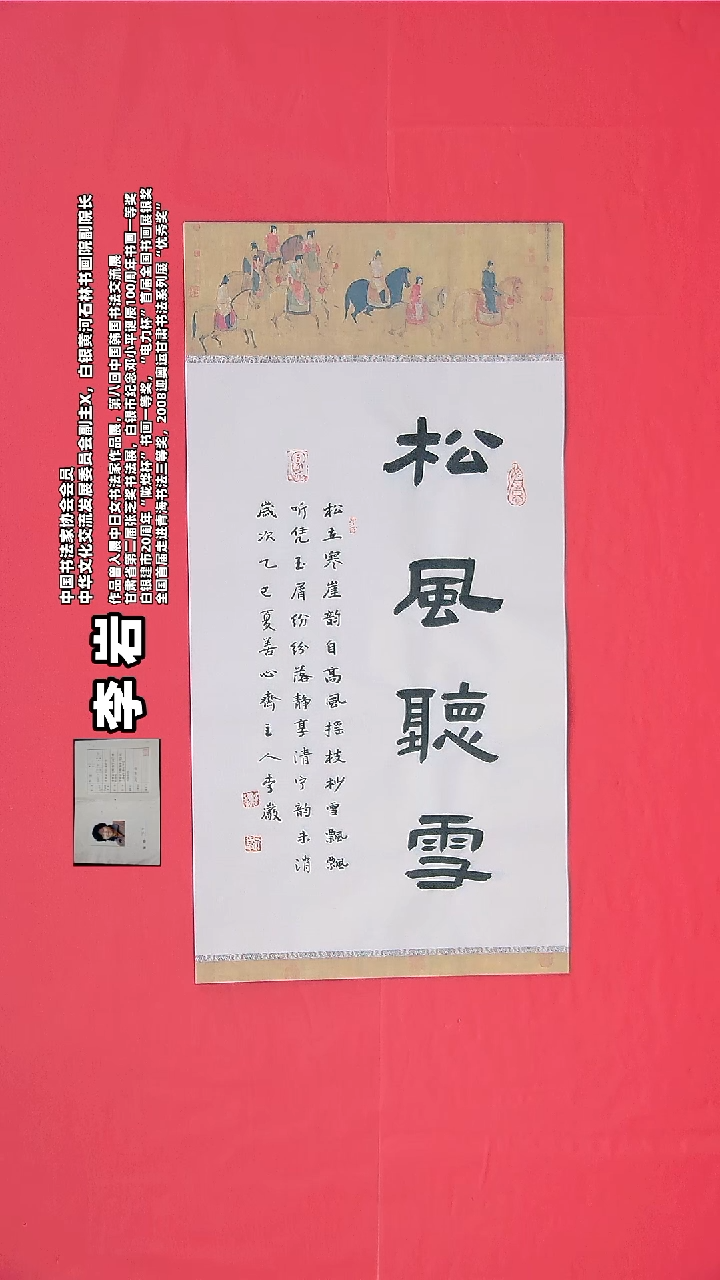 松風聽雪
松立寒崖韵自高風摇枝杪雪飄飄
听凭玉屑纷纷落静享清宁韵未消
歲次乙巳夏善心齋主人李巖
李岩
中国书法家协会会员
中华文化交流发展委员会副主义，白银黄河石林书画院副院长
作品曾入展中日女书法家作品展，第八回中国韩国书法交流展
甘肃省第二届张芝奖书法展，白银市纪念邓小平诞辰100周年书画一等奖
白银建市20周年“乾烨杯”书画一等奖，“电力杯”首届全国书画展银奖
全国首届走进青海书法三等奖，2008迎奥运甘肃书法系列展“优秀奖”